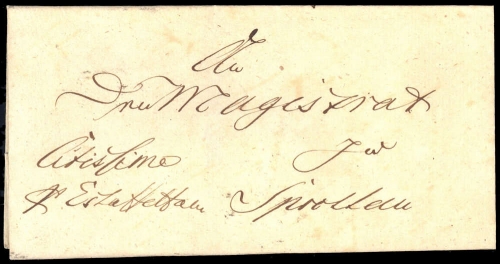 An
Den Magistrat
Citissime zu
pr Estaffettam Sprottau